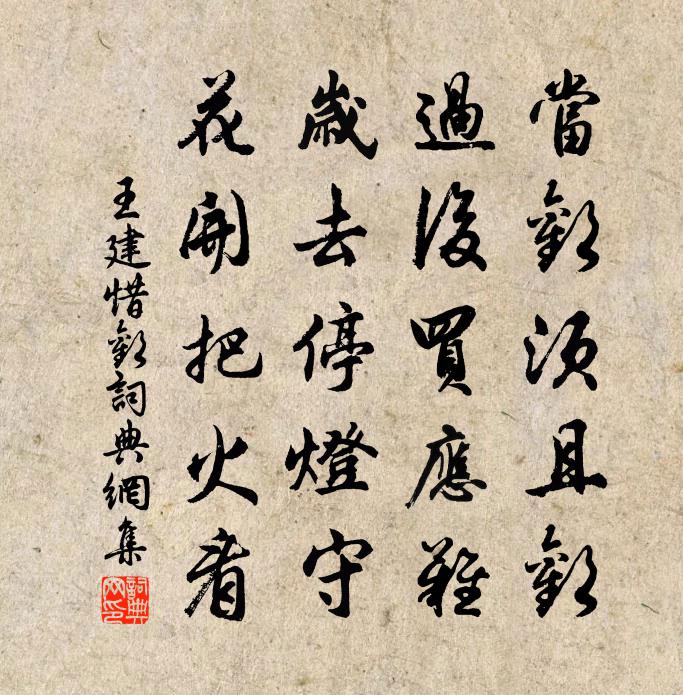 當歡須且歡
過後買應難
歲去停燈守
花開把火看
王建惜歡詞典網集
詞典网印